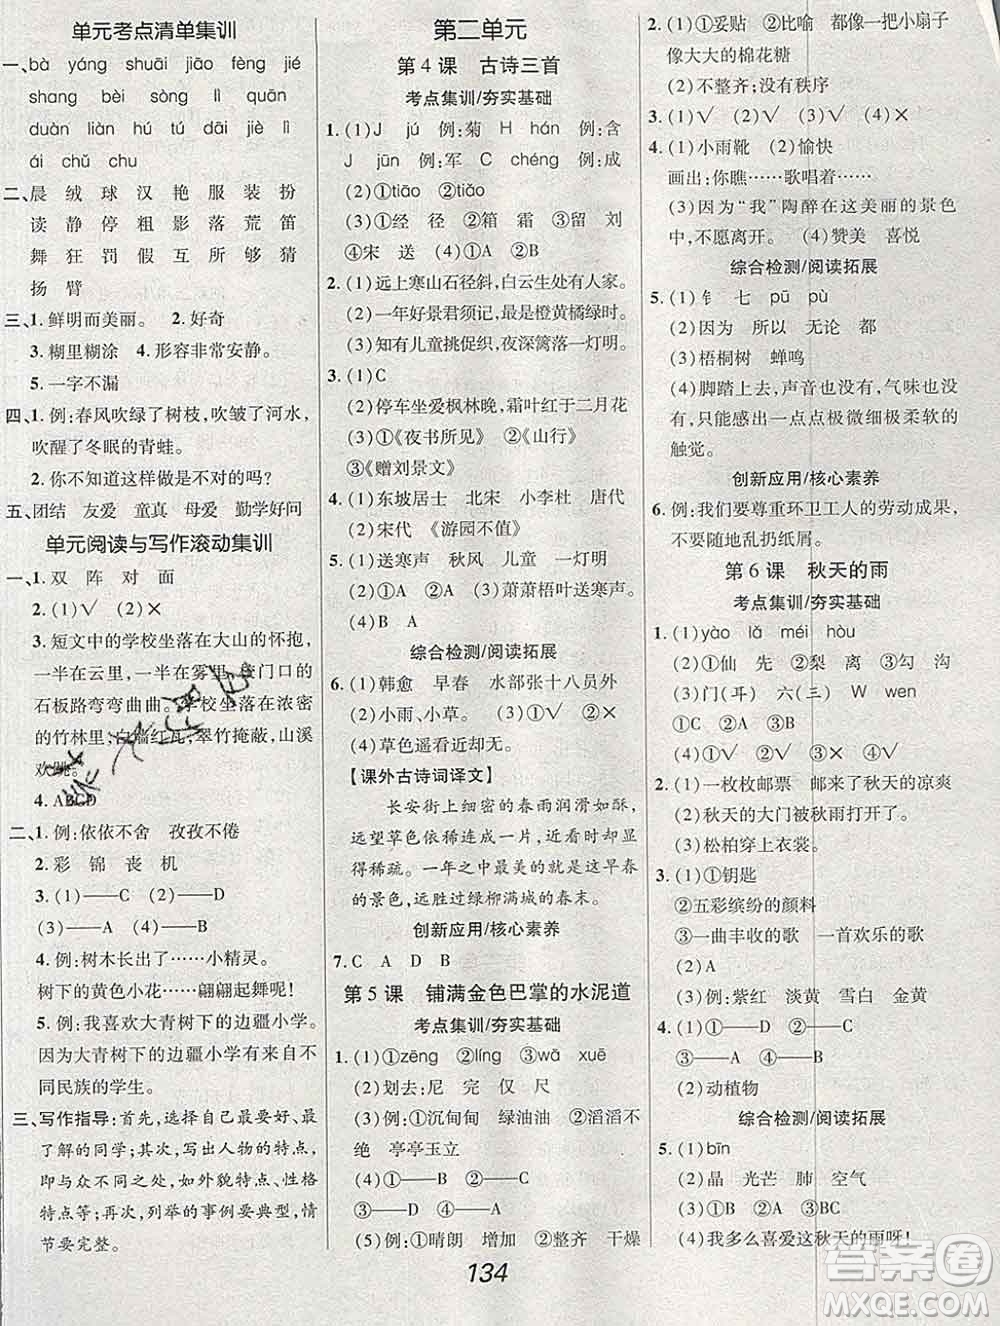 单元考点清单集训
一、bà yáng shuāi jiāo fèng jié
shang bèi sòng lì quān
duàn liàn hú tú dāi jiè lǐ
ái chǔ chu
二、晨 绒 球 汉 艳 服 装 扮
读 静 停 粗 影 落 荒 笛
舞 狂 罚 假 互 所 够 猜
扬 臂
三、1. 鲜明而美丽。 2. 好奇
3. 糊里糊涂 4. 形容非常安静。
5. 一字不漏
四、1. 例:春风吹绿了树枝,吹皱了河水,
吹醒了冬眠的青蛙。
2. 你不知道这样做是不对的吗?
五、团结 友爱 童真 母爱 勤学好问
单元阅读与写作滚动集训
一、1. 双 阵 对 面
2. (1)√ (2)×
3. 短文中的学校坐落在大山的怀抱,
一半在云里,一半在雾里,寨门口的
石板路弯弯曲曲。学校坐落在浓密
的竹林里,白墙红瓦,翠竹掩蔽,山溪
欢跳。
4. ABCD
二、1. 例:依依不舍 孜孜不倦
2. 彩 锦 丧 机
3. (1)——C (2)——D
(3)——A (4)——B
4. 例:树木长出了……小精灵。
树下的黄色小花……翩翩起舞呢!
5. 例:我喜欢大青树下的边疆小学。
因为大青树下的边疆小学有来自不
同民族的学生。
三、写作指导:首先,选择自己最要好、最
了解的同学;其次,写出人物的特点,
即与众不同之处,如外貌特点、性格
特点等;最后,列举的事例要典型,情
节要完整。
第二单元
第 4 课 古诗三首
考点集训/夯实基础
1. (1)J jú 例:菊 H hán 例:含
J jūn 例:军 C chéng 例:成
(2)①tiāo ②tiǎo
(3)①经 径 ②箱 霜 ③留 刘
④宋 送 (4)①A ②B
2. (1)远上寒山石径斜,白云生处有人家。
(2)一年好景君须记,最是橙黄橘绿时。
(3)知有儿童挑促织,夜深篱落一灯明。
3. (1)C
(2)停车坐爱枫林晚,霜叶红于二月花
(3)①《夜书所见》 ②《山行》
③《赠刘景文》
4. (1)东坡居士 北宋 小李杜 唐代
(2)宋代 《游园不值》
5. (1)送寒声 秋风 儿童 一灯明
(2)①√ ②× (3)萧萧梧叶送寒声
(4)B A
综合检测/阅读拓展
6. (1)韩愈 早春 水部张十八员外
(2)小雨、小草。 (3)①√ ②×
(4)草色遥看近却无。
【课外古诗词译文】
长安街上细密的春雨润滑如酥,
远望草色依稀连成一片,近看时却显
得稀疏。一年之中最美的就是这早春
的景色,远胜过绿柳满城的春末。
创新应用/核心素养
7. C A D B
第 5 课 铺满金色巴掌的水泥道
考点集训/夯实基础
1. (1)①zēng ②líng ③wā xuē
(2)划去:尼 完 仅 尺
(3)例:①沉甸甸 绿油油 ②滔滔不
绝 亭亭玉立
(4)①——B ②——C
③——D ④——A
(5)例:①晴朗 增加 ②整齐 干燥
2. (1)①妥贴 ②比喻 都像一把把小扇子
像大大的棉花糖
(2)不整齐;没有秩序
3. (1)√ (2)√ (3)√ (4)×
4. (1)小雨靴 (2)愉快
画出:你瞧……歌唱着……
(3)因为“我”陶醉在这美丽的景色
中,不愿离开。 (4)赞美 喜悦
综合检测/阅读拓展
5. (1)钅 七 pū pù
(2)因为 所以 无论 都
(3)梧桐树 蝉鸣
(4)脚踏上去,声音也没有,气味也没
有,只能感出一点点极微细极柔软的
触觉。
创新应用/核心素养
6. 例:我们要尊重环卫工人的劳动成果,
不要随地乱扔纸屑。
第 6 课 秋天的雨
考点集训/夯实基础
1. (1)yào lǎ méi hòu
(2)①仙 先 ②梨 离 ③勾 沟
(3)门(耳) 六(三) W wen
①C ②D ③C
(4)①√ ②√ ③√ ④×
2. (1)一枚枚邮票 邮来了秋天的凉爽
(2)秋天的大门被秋雨打开了。
(3)松柏穿上衣裳。
3. (1)①钥匙
②五彩缤纷的颜料
③一曲丰收的歌 一首欢乐的歌
(2)例:紫红 淡黄 雪白 金黄
4. (1)①——C ②——D
③——A ④——B
(2)动植物
综合检测/阅读拓展
5. (1)bīn
(2)晶 光芒 肺 空气
(3)①C ②B ③BC
(4)我多么喜爱这秋天的雨呀!
134
答案圈
MXQE.COM